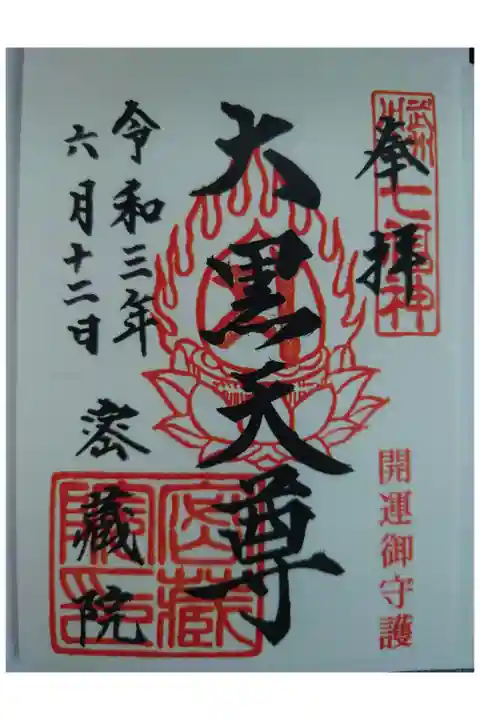 奉拝
武州
七福神
開運御守護
大黒天尊
令和三年
六月十二日
密蔵院